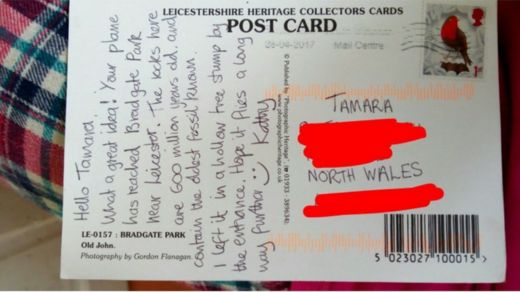 LEICESTERSHIRE HERITAGE COLLECTORS CARDS
POST CARD
28-04-2017
Mail Centre
Hello Tamara,
What a great idea! Your plane
has reached Bradgate Park
near Leicester. The rocks here
are 600 million years old, and
contain the oldest fossil known.
I left it in a hollow tree stump by
the entrance. Hope it flies a long
way further :) Kathy
© Published by 'Photographic Heritage'
www.photographicheritage.co.uk
TAMARA
NORTH WALES
LE-0157 : BRADGATE PARK
Old John.
Photography by Gordon Flanagan.
5 023027 100015 >